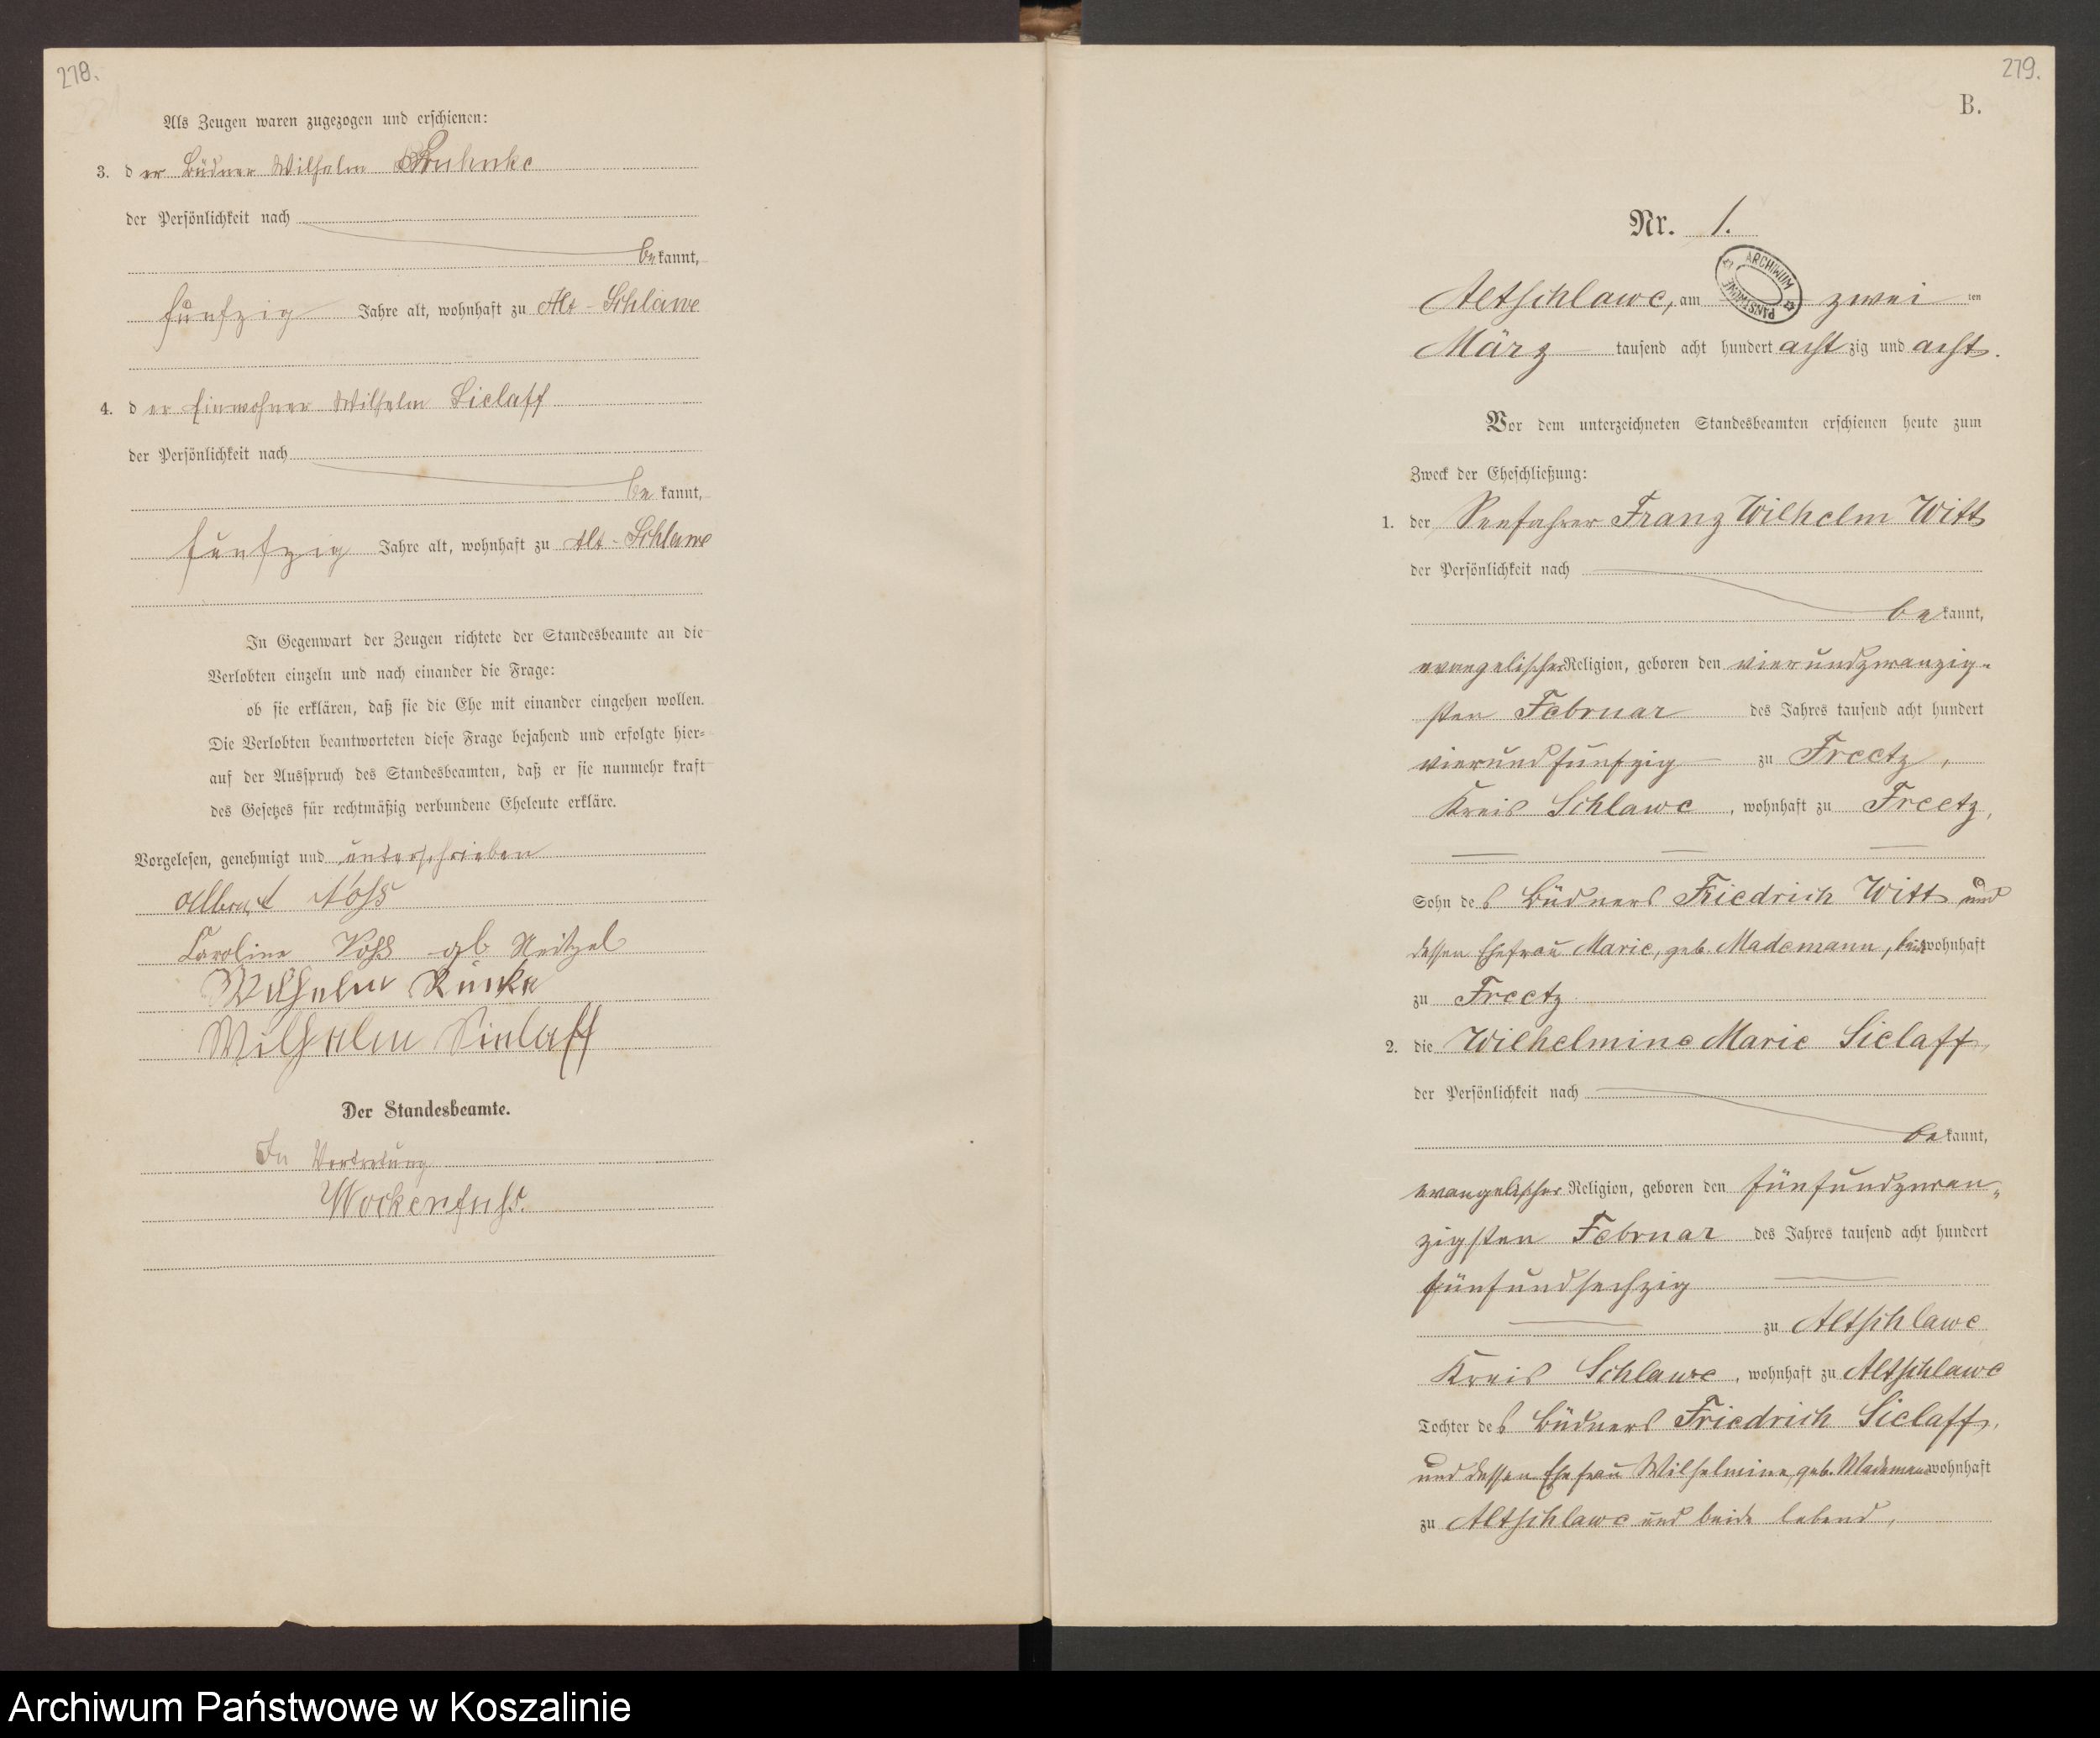 278.
Als Zeugen waren zugezogen und erschienen:
3. der Büdner Wilhelm
der Persönlichkeit nach
bekannt,
fünfzig Jahre alt, wohnhaft zu Alt-Schlawe
4. der Einwohner Wilhelm Sielaff
der Persönlichkeit nach
bekannt,
fünfzig Jahre alt, wohnhaft zu Alt-Schlawe
In Gegenwart der Zeugen richtete der Standesbeamte an die
Verlobten einzeln und nach einander die Frage:
ob sie erklären, daß sie die Ehe mit einander eingehen wollen.
Die Verlobten beantworteten diese Frage bejahend und erfolgte hier-
auf der Ausspruch des Standesbeamten, daß er sie nunmehr kraft
des Gesetzes für rechtmäßig verbundene Eheleute erkläre.
Vorgelesen, genehmigt und unterschrieben
Albert Voß
Caroline Voß gb Neitzel
Wilhelm
Wilhelm Sielaff
Der Standesbeamte.
In Vertretung
Wockenfuß.
279.
B.
Nr. 1.
ARCHIWUM PAŃSTWOWE
Altschlawe, am zwei ten
März tausend acht hundert achtzig und acht.
Vor dem unterzeichneten Standesbeamten erschienen heute zum
Zweck der Eheschließung:
1. der Seefahrer Franz Wilhelm Witt
der Persönlichkeit nach
bekannt,
evangelischer Religion, geboren den vierundzwanzig-
sten Februar des Jahres tausend acht hundert
vierundfünfzig zu Freetz,
Kreis Schlawe, wohnhaft zu Freetz,
Sohn des Büdners Friedrich Witt und
dessen Ehefrau Marie, geb. Mademann, beide wohnhaft
zu Freetz
2. die Wilhelmine Marie Sielaff,
der Persönlichkeit nach
bekannt,
evangelischer Religion, geboren den fünfundzwan-
zigsten Februar des Jahres tausend acht hundert
fünfundsechzig
zu Altschlawe
Kreis Schlawe, wohnhaft zu Altschlawe
Tochter des Büdners Friedrich Sielaff,
und dessen Ehefrau Wilhelmine, geb. Mademann wohnhaft
zu Altschlawe und beide lebend,
Archiwum Państwowe w Koszalinie